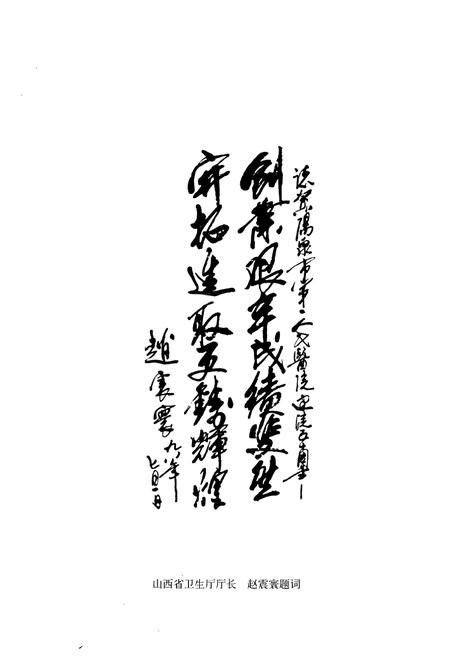 志贺阳泉市第一人民醫院建院五十周年
創業艰辛成绩斐然
开拓進取更鑄輝煌
趙震寰 九八年
七月一日
山西省卫生厅厅长　赵震寰题词